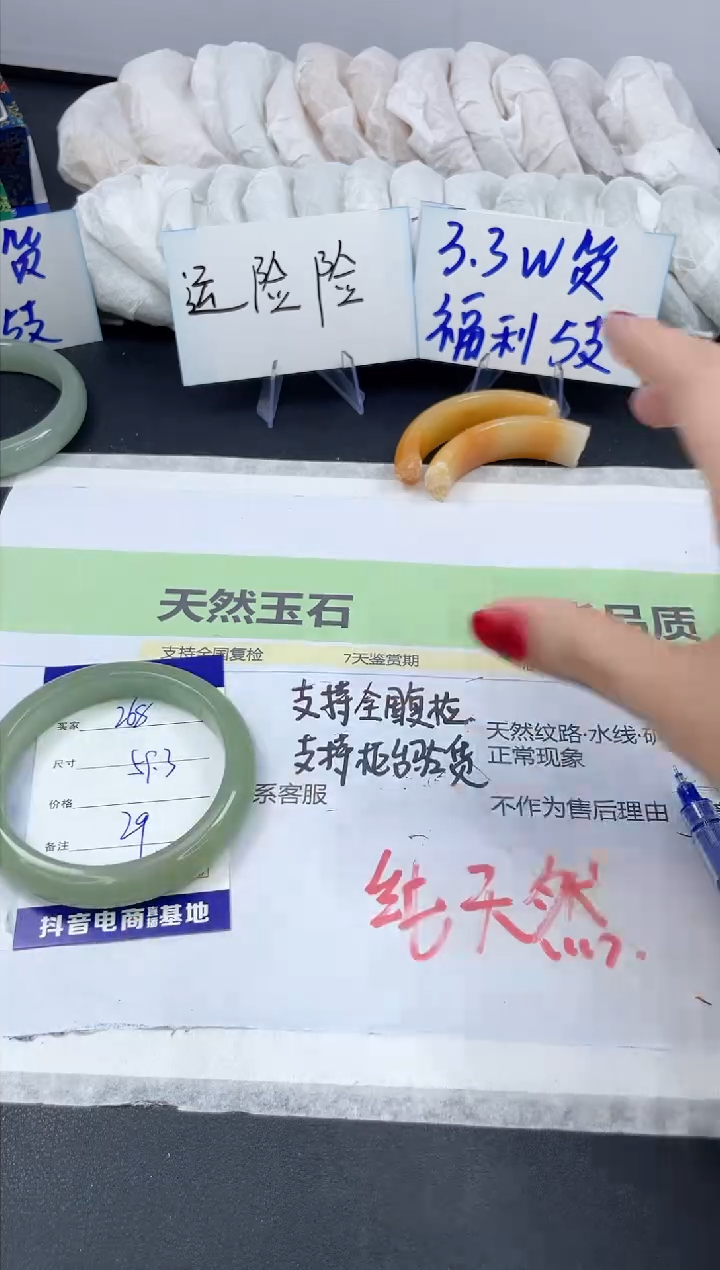 货
5支
运险险
3.3W货
福利5支
天然玉石
品质
支持全国复检
7天鉴赏期
买家 268
尺寸 59.3
价格
备注 29
抖音电商直播基地
支持全国复检
支持柜台验货
系客服
天然纹路·水线·矿
正常现象
不作为售后理由
纯天然